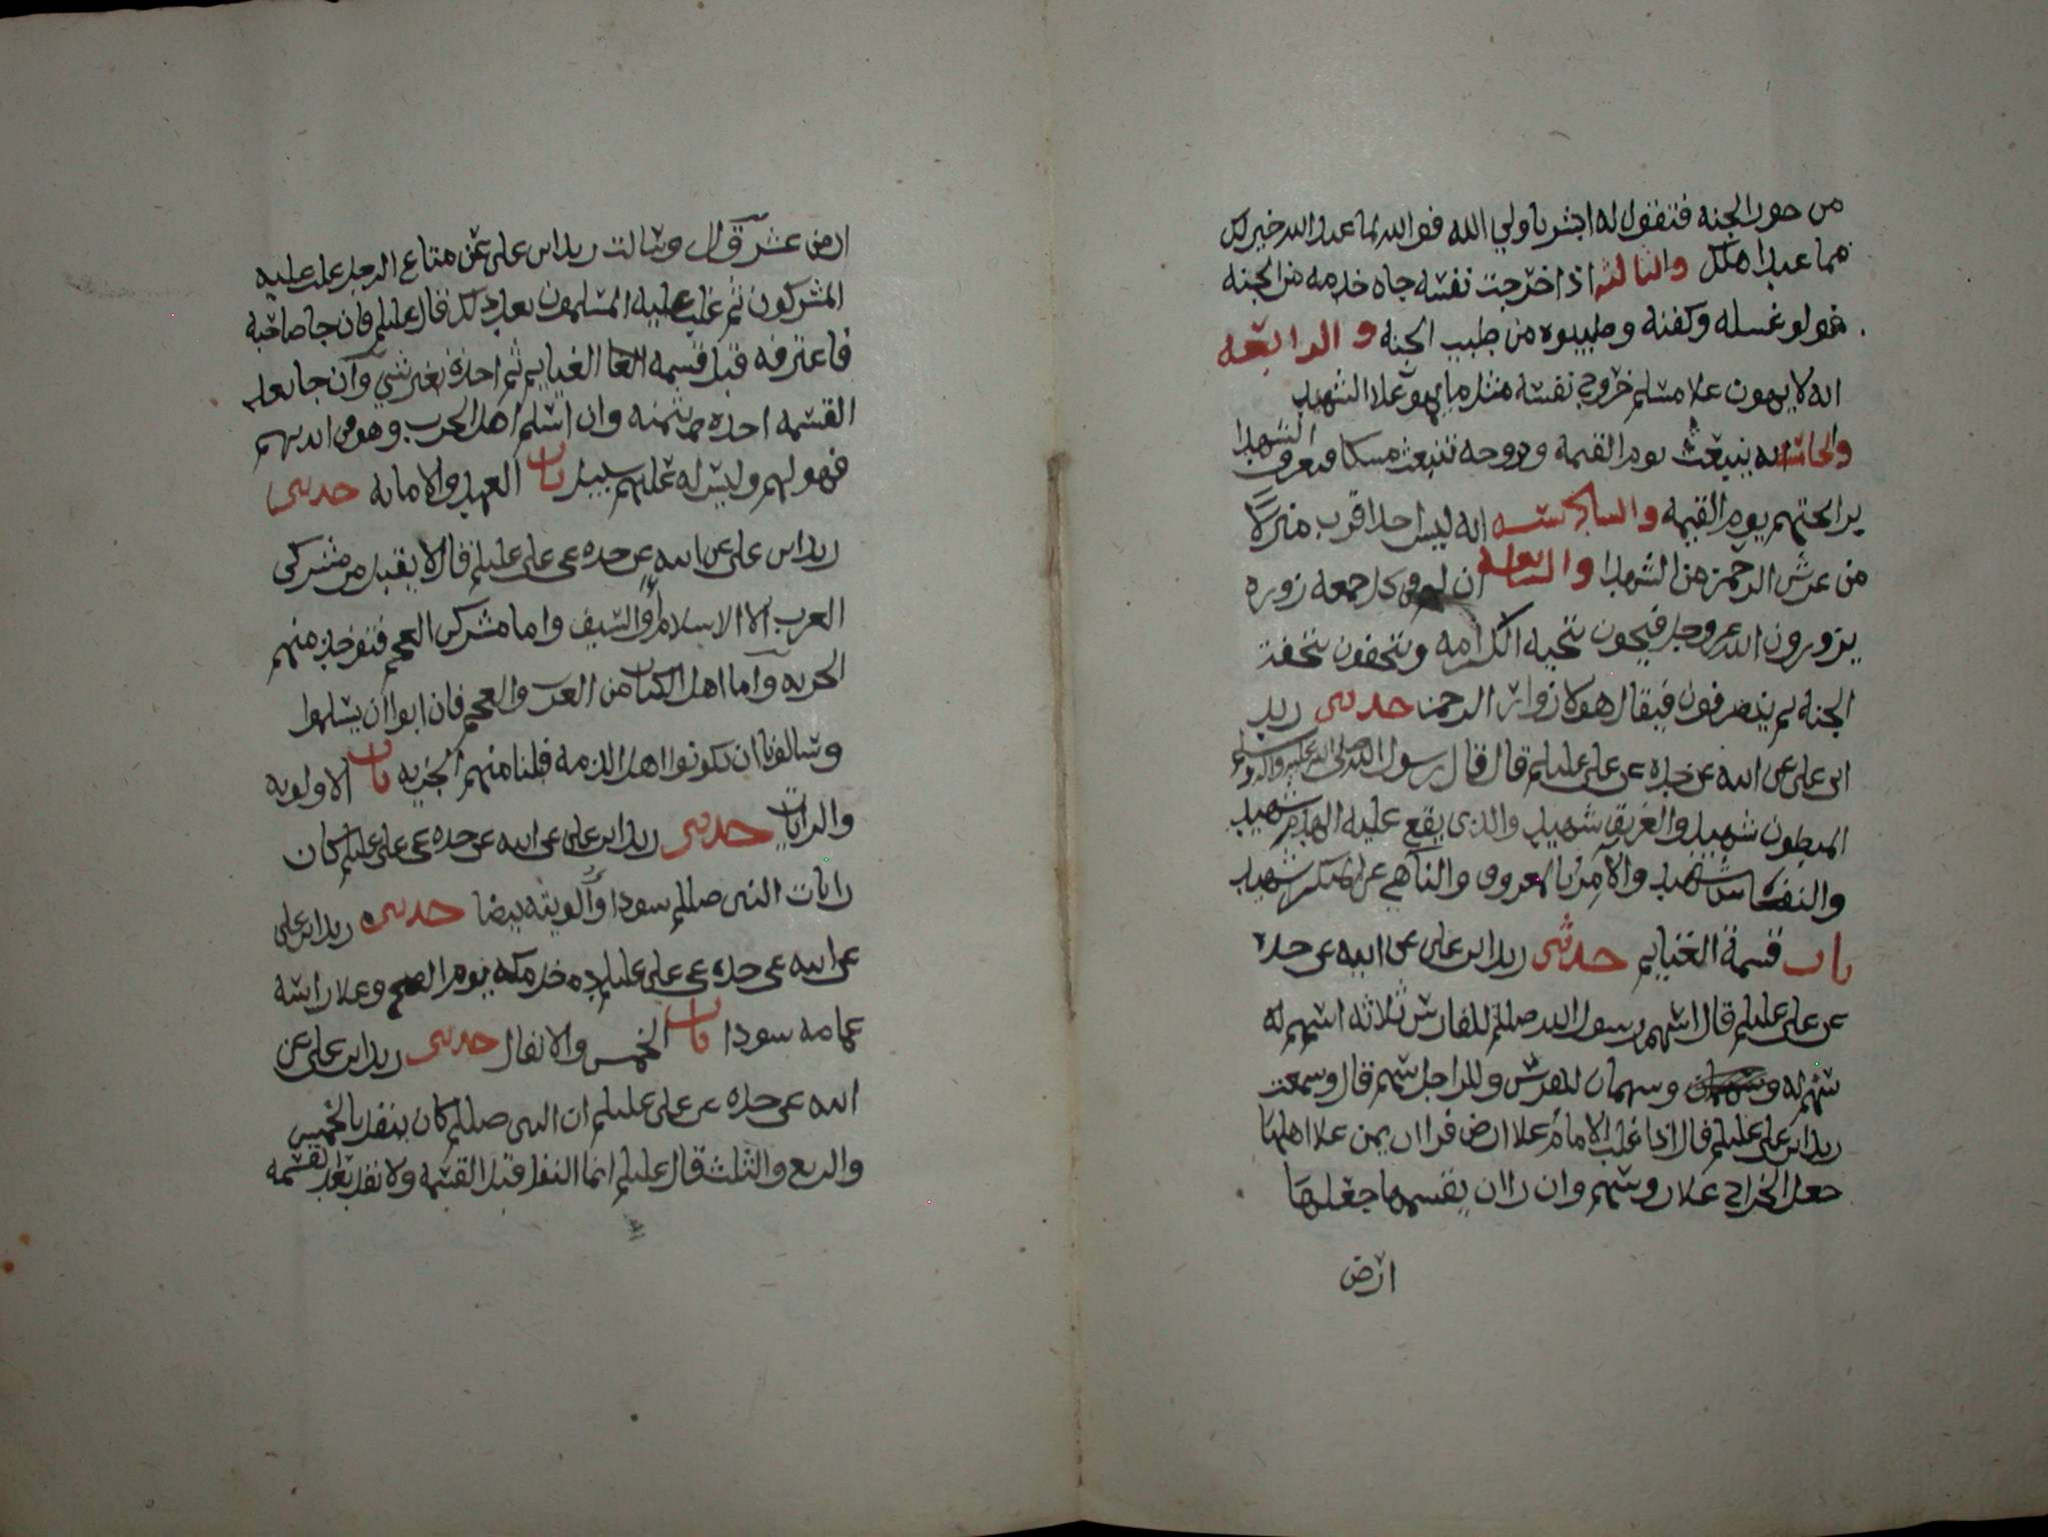 من حور الجنه فتقول له ابشر يا ولي الله فوالله لما عند الله خير لك
مما عند اهلك والثالثه اذا خرجت نفسه جاه خدمه من الجنه
فولو غسله وكفنه وطيبوه من طيب الجنه والرابعه
انه لا يهون علا مسلم خروج نفسه مثل ما يهون علا الشهيد
والخامسه انه ينبعث يوم القيمة وجروحه تنبعث مسكا فيعرف الشهدا
برايحتهم يوم القيمه والسادسه انه ليس احد اقرب منزلا
من عرش الرحمن من الشهدا والسابعه ان لهم في كل جمعه زوره
يزورون الله عز وجل فيحيون بتحيه الكرامه ويتحفون بتحفت
الجنه ثم ينصرفون فيقال هولا زوار الرحمن حدثني زيد
ابن علي عن ابيه عن جده عن علي عليلم قال قال رسول الله صلى الله عليه واله وسلم
المبطون شهيد والغريق شهيد والذي يقع عليه الهدم شهيد
والنفسا شهيد والآمر بالمعروف والناهي عن المنكر شهيد
باب قسمة الغنايم حدثني زيد ابن علي عن ابيه عن جده
عن علي عليلم قال اسهم رسول الله صللم للفارس ثلاثه اسهم له
سهم له وسهمان للفرس وللراجل سهم قال وسمعت
زيد ابن علي عليلم قال اذا غلب الامام علا ارض فراا ان يمن علا اهلها
جعل الخراج علا روسهم وان راا ان يقسمها جعلها
ارض
ارض عشر قال وسالت زيد ابن علي عن متاع الرجل غلب عليه
المشركون ثم غلب عليه المسلمون بعد ذلك قال عليلم فان جا صاحبه
فاعترفه قبل قسمه الغنايم ثم اخذه بغير شي وان جا بعد
القسمه اخذه بثمنه وان اسلم اهل الحرب وهو في ايديهم
فهو لهم وليس له عليهم سبيل باب العهد والامانه حدثني
زيد ابن علي عن ابيه عن جده عن علي عليلم قال لا يقبل من مشركي
العرب الا الاسلام او السيف واما مشركي العجم فتوخذ منهم
الجزيه واما اهل الكتاب من العرب والعجم فان ابوا ان يسلموا
وسالونا ان يكونوا اهل الذمه قبلنا منهم الجزيه باب الالويه
والرايات حدثني زيد ابن علي عن ابيه عن جده عن علي عليلم كان
رايات النبي صللم سودا والويته بيضا حدثني زيد ابن علي
عن ابيه عن جده عن علي عليلم دخل مكه يوم الفتح وعلا راسه
عمامه سودا باب الخمس والانفال حدثني زيد ابن علي عن
ابيه عن جده عن علي عليلم ان النبي صللم كان ينفل بالخمس
والربع والثلث قال عليلم انما النفل قبل القسمه ولا نفل بعد القسمه